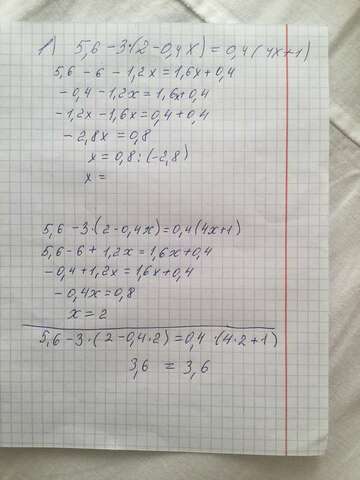 1) 5,6-3·(2-0,4x)=0,4(4x+1)
5,6-6-1,2x=1,6x+0,4
-0,4-1,2x=1,6x+0,4
-1,2x-1,6x=0,4+0,4
-2,8x=0,8
x=0,8:(-2,8)
x=
5,6-3·(2-0,4x)=0,4(4x+1)
5,6-6+1,2x=1,6x+0,4
-0,4+1,2x=1,6x+0,4
-0,4x=0,8
x=2
5,6-3·(2-0,4·2)=0,4·(4·2+1)
3,6=3,6